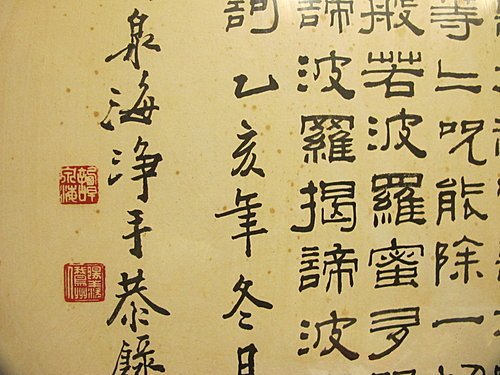 等二呪能除一切
般若波羅蜜多呪
諦波羅揭諦波
訶 乙亥年冬日
泉海浄手恭録